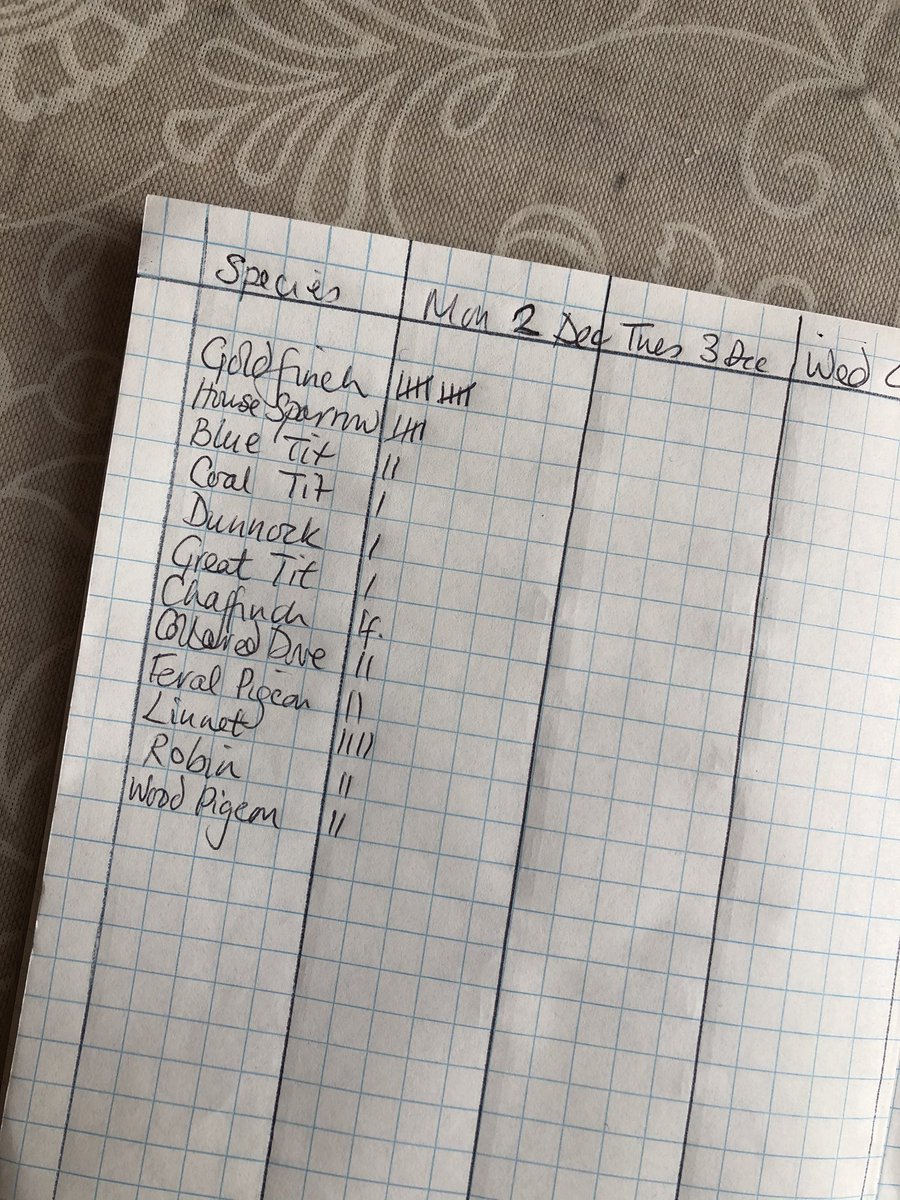 Species Mon 2 Dec Tues 3 Dec Wed
Goldfinch 卌 卌
House Sparrow 卌
Blue Tit ||
Coal Tit |
Dunnock |
Great Tit |
Chaffinch 1f.
Collared Dove ||
Feral Pigeon ||
Linnet ||||
Robin ||
Wood Pigeon ||